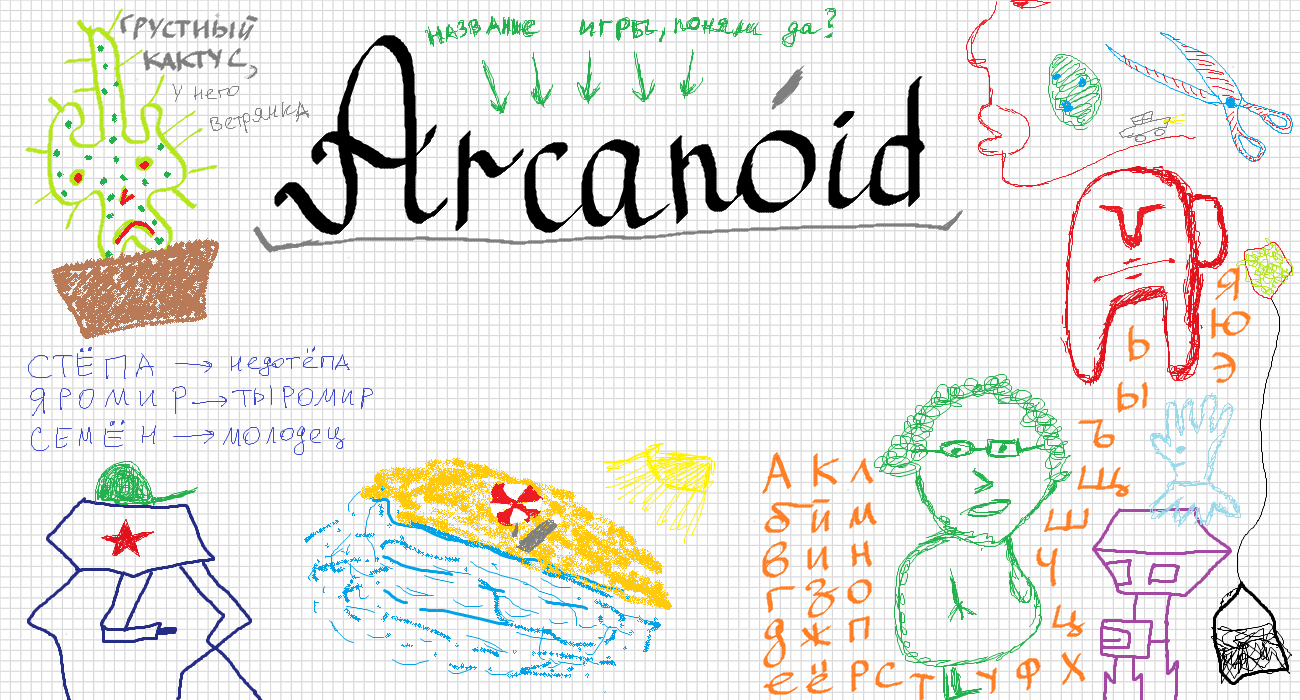 ГРУСТНЫЙ
КАКТУС,
У него
ветрянка
НАЗВАНИЕ ИГРЫ, поняли да?
Arcanoid
СТЁПА → недотёпа
ЯРОМИР → ТЫРОМИР
СЕМЁН → молодец
А К Л
б й м
в и н
г з о
д ж п
е ё Р С Т У Ф Х
ц
Ч
Ш
Щ
Ъ
Ы
Ь
Э
Ю
Я